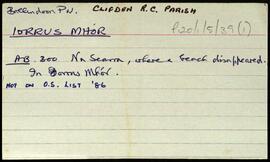 Ballindoon P.N. CLIFDEN R.C. PARISH
P20/1/5/39(1)
IORRUS MHÓR
AB. 300 Na Scanna, where a beach disappeared.
In Iorrus Mhór.
NOT ON O.S. LIST '86